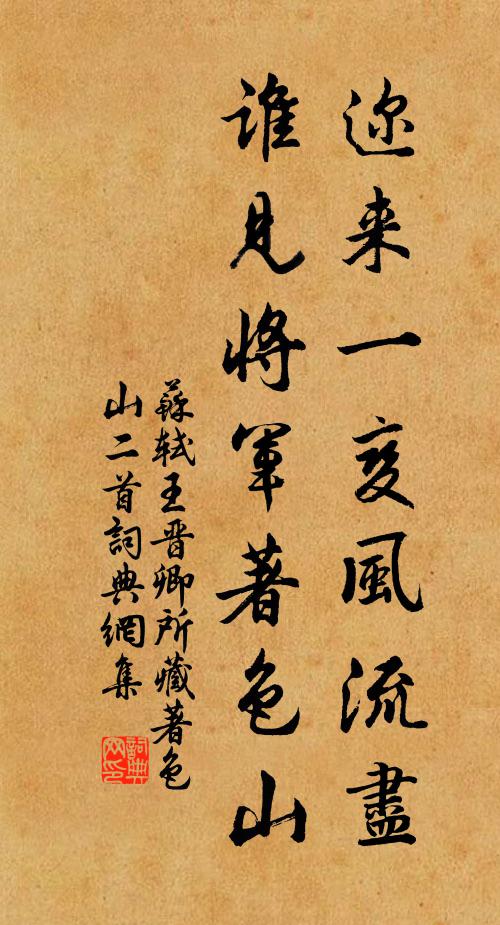 迩来一变風流盡
誰見將軍著色山
蘇軾王晋卿所藏著色
山二首詞典網集
詞典网印